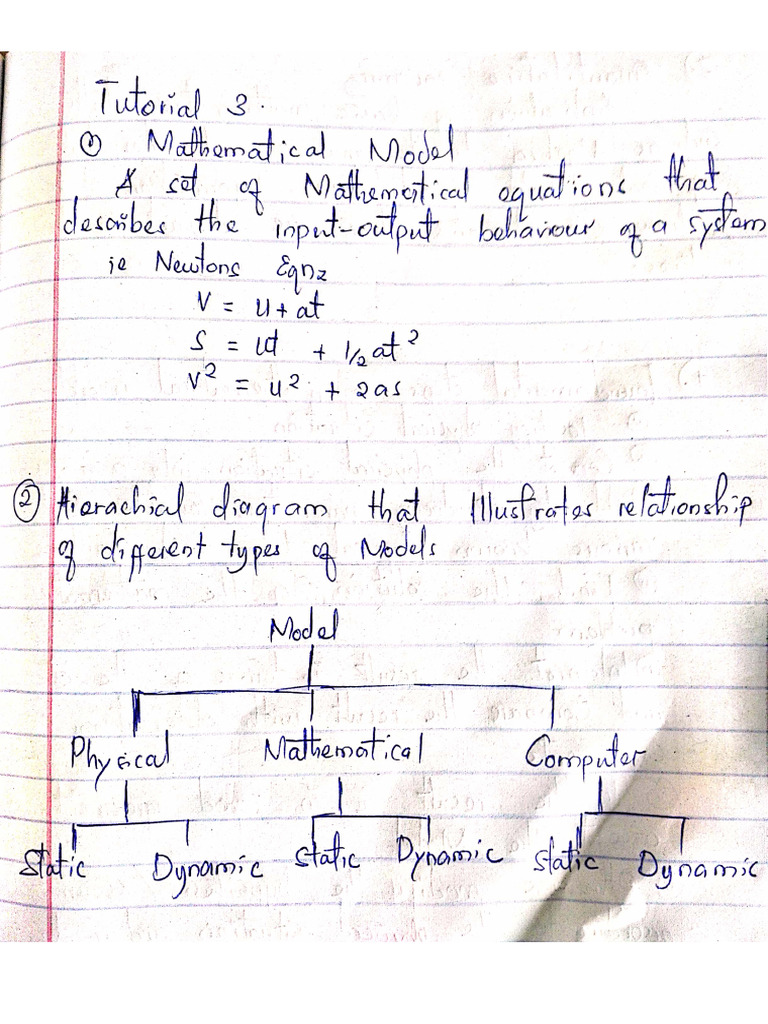 Tutorial 3.
① Mathematical Model
A set of Mathematical equations that
describes the input-output behaviour of a system
ie Newtons Eqnz
V = u + at
S = ut + 1/2 at²
V² = u² + 2as
② Hierachial diagram that Illustrates relationship
of different types of Models
Model
Physical Mathematical Computer
Static Dynamic Static Dynamic Static Dynamic